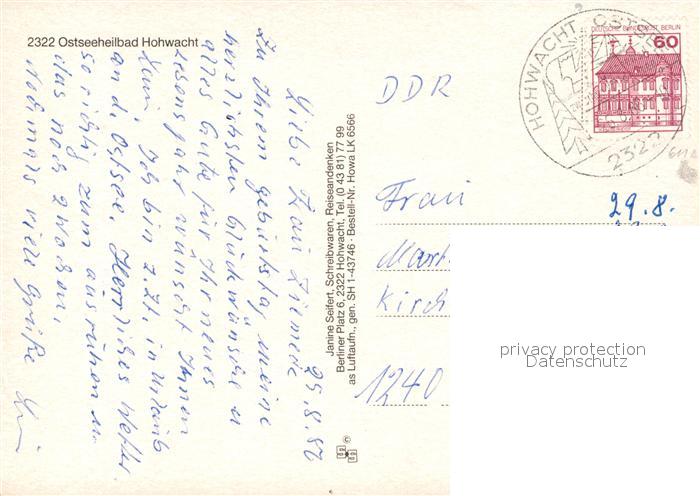 2322 Ostseeheilbad Hohwacht
25.8.86
Liebe Frau Ziemede
Zu Ihrem Geburtstag meine
herzlichsten Glückwünsche u
alles Gute für Ihr neues
Lebensjahr wünscht Ihnen
Ich bin z. Zt. in Urlaub
an d. Ostsee. Herrliches Wetter
so richtig zum ausruhen u.
das noch 2 Wochen.
Nochmals viele Grüße
Janine Seifert, Schreibwaren, Reiseandenken
Berliner Platz 6, 2322 Hohwacht, Tel. (0 43 81) 77 99
as Luftaufn., gen. SH 1-43746 · Bestell-Nr. Howa LK 6566
©
HOHWACHT OSTSEE
2322
DEUTSCHE BUNDESPOST BERLIN
60
DDR
Frau
29.8.
Mart
Kirch
1240
privacy protection
Datenschutz